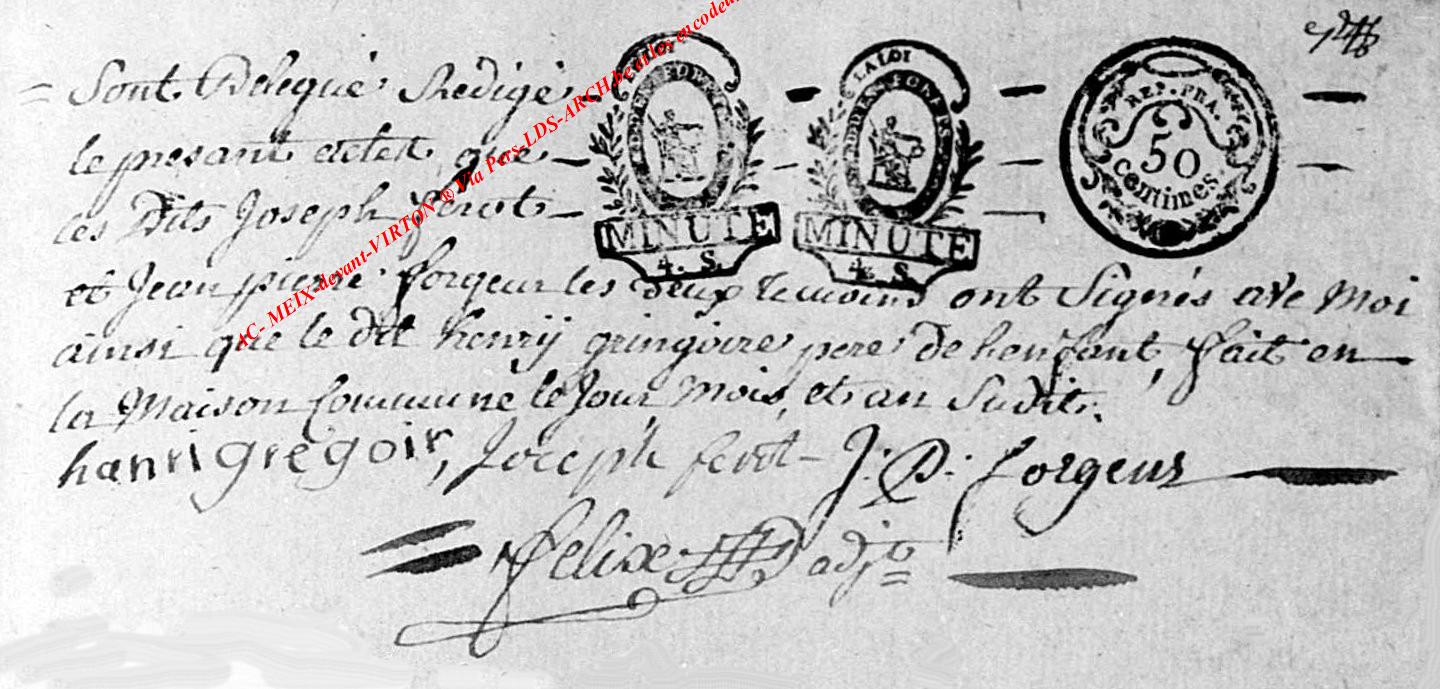 = Sont Delegué Redigé
le present actet que
les Dits Joseph ferot
et Jean pierre forgeur les deux temoins ont Signés ave Moi
ainsi que le dit henrij gringoire pere de henfant, fait en
la Maison Commune le Jour, Mois, et an Sudit.
hanri gregoir, Joceph ferot J: P: forgeur
felixe adjt
LA LOI
MINUTE
4. S.
LA LOI
MINUTE
4. S.
REP. FRA.
50
Centimes.
AC- MEIX-devant-VIRTON ® Via Pers-LDS-ARCH.be et les encodeur